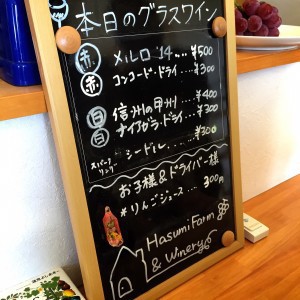 本日のグラスワイン
赤 メルロ '14 .... ¥500
赤 コンコード・ドライ ... ¥300
白 信州の甲州 ... ¥400
白 ナイアガラ・ドライ ... ¥300
スパークリング シードル ... ¥300
お子様&ドライバー様
*りんごジュース ... 300円
Hasumi Farm
& Winery